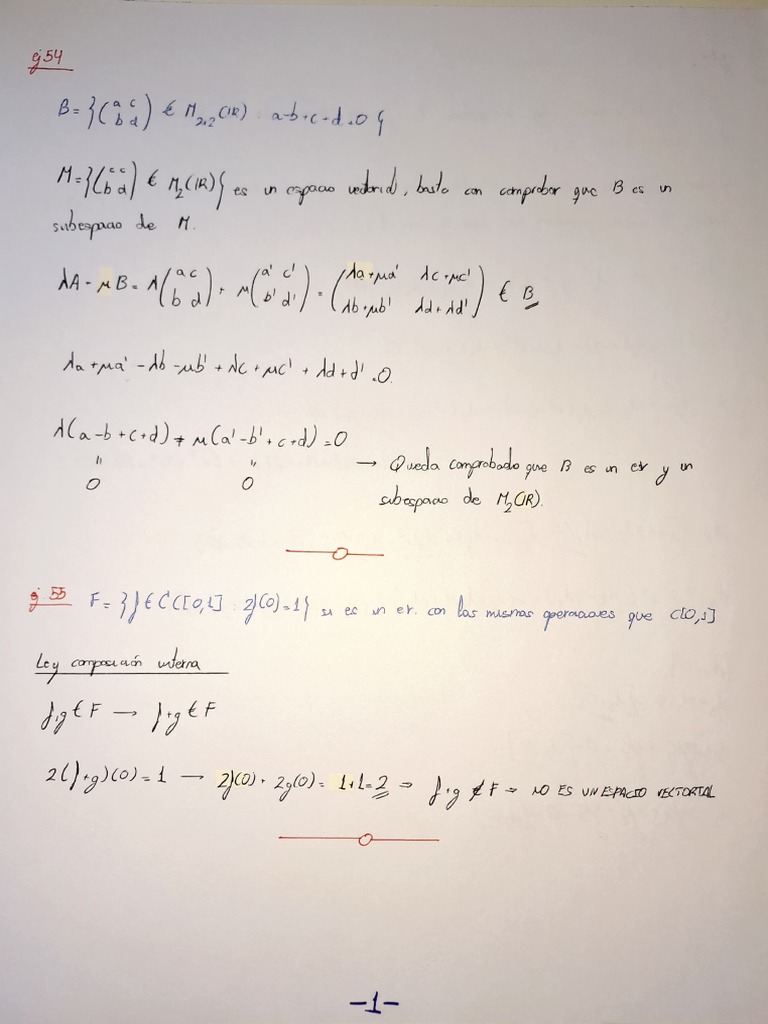 ej 54
B = }(a c
b d) € M2x2(IR) : a-b+c+d=0 {
M = }(c c
b d) € M2(IR){ es un espacio vectorial, basta con comprobar que B es un
subespacio de M.
λA - μB = λ(a c
b d) + μ(a' c'
b' d') = (λa+μa' λc+μc'
λb+μb' λd+λd') € B
λa + μa' - λb - μb' + λc + μc' + λd + d' = 0
λ(a-b+c+d) + μ(a'-b'+c+d) = 0
" "
0 0
→ Queda comprobado que B es un ev y un
subespacio de M2(IR).
ej 55 F = }f € C([0,1] : 2f(0)=1} si es un ev. con las mismas operaciones que C[0,1]
Ley composición interna
f,g € F → f+g € F
2(f+g)(0) = 1 → 2f(0) + 2g(0) = 1+1=2 ⇒ f+g ∉ F → NO ES UN ESPACIO VECTORIAL
-1-